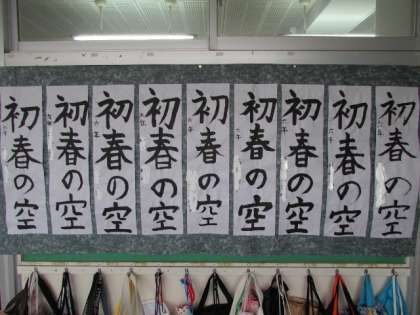 初春の空
初春の空
初春の空
初春の空
初春の空
初春の空
初春の空
初春の空
初春の空